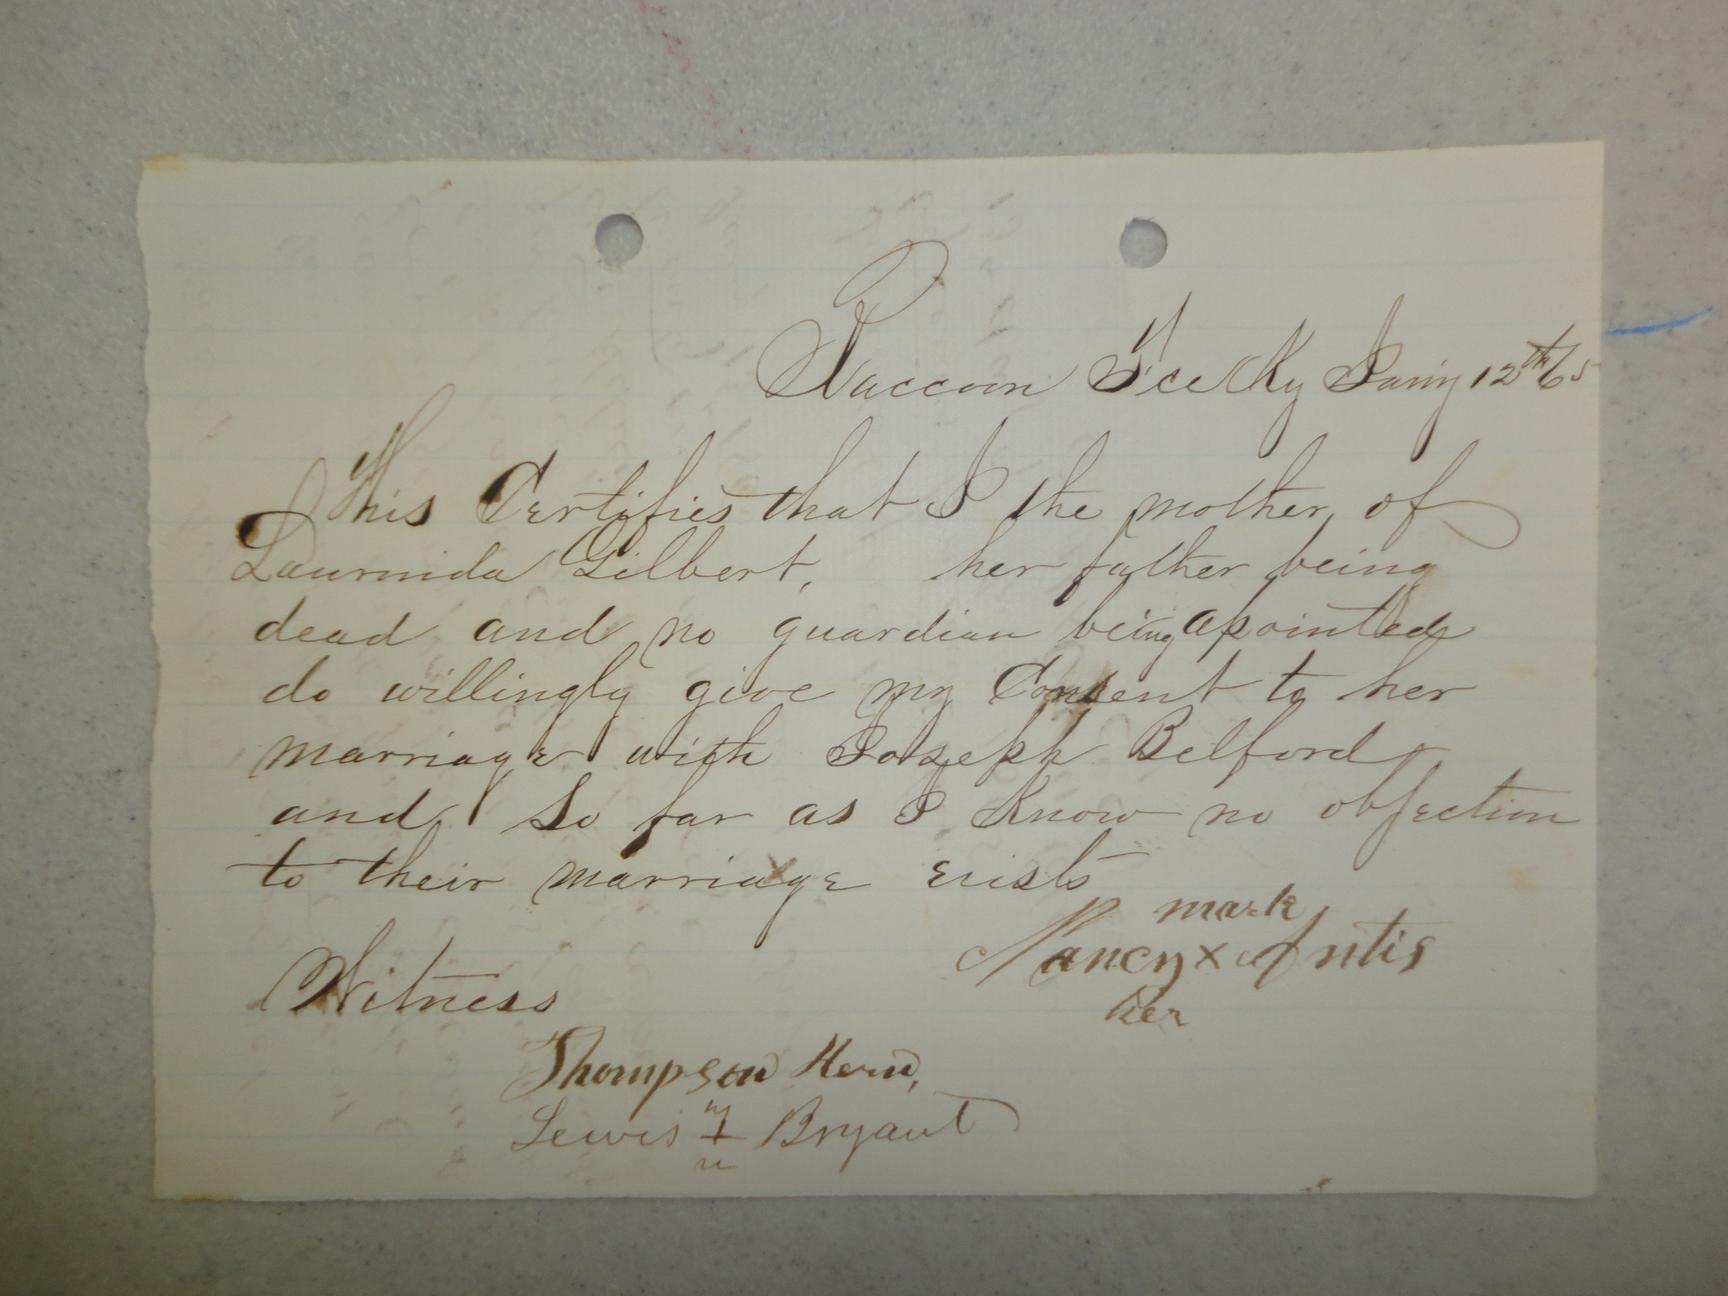 Raccoon Fce Ky Jany 12th 65
This Certifies that I the mother of
Laurinda Gilbert, her father being
dead and no guardian being apointed
do willingly give my Consent to her
marriage with Joseph Belford
and so far as I know no objection
to their marriage exists
mark
Nancy x Antis
her
Witness
Thompson Hern,
Lewis Bryant